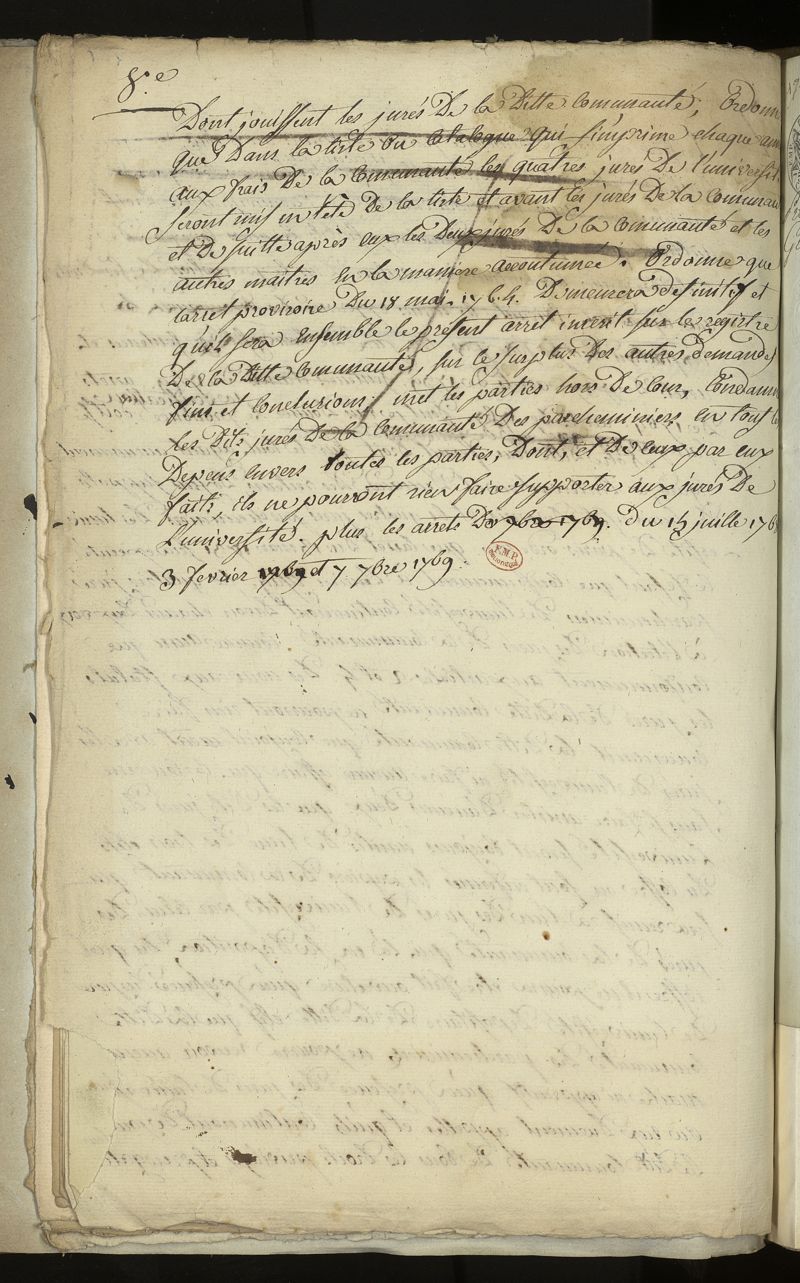 8.e
Dont jouissent les jurés De la Ditte communauté; Ordonne
que Dans la liste ou catalogue qui s'imprime chaque année
aux frais De la communauté les quatres jurés De l'université
Seront mis en tête De la liste et avant les jurés De la communauté
et De suitte après eux les Deux jurés De la communauté et les
autres maitres en la maniere accoutumée. Ordonne que
larret provisoire Du 18 mai 1764. Demeurera definitif et
qu'il sera ensemble le présent arret inscrit sur le registre
De la Ditte communauté, sur le surplus Des autres demandes
fins et conclusions met les parties hors De Cour, Condamne
les Dits jurés De la communauté Des parcheminiers en tous les
Depens envers toutes les parties, Dont, et De ceux par eux
faits, ils ne pourront rien faire supporter aux jurés De
L'université. plus les arrets De 7bre 1769. du 15 juillet 176
3 fevrier 1769 et 7 7bre 1769.